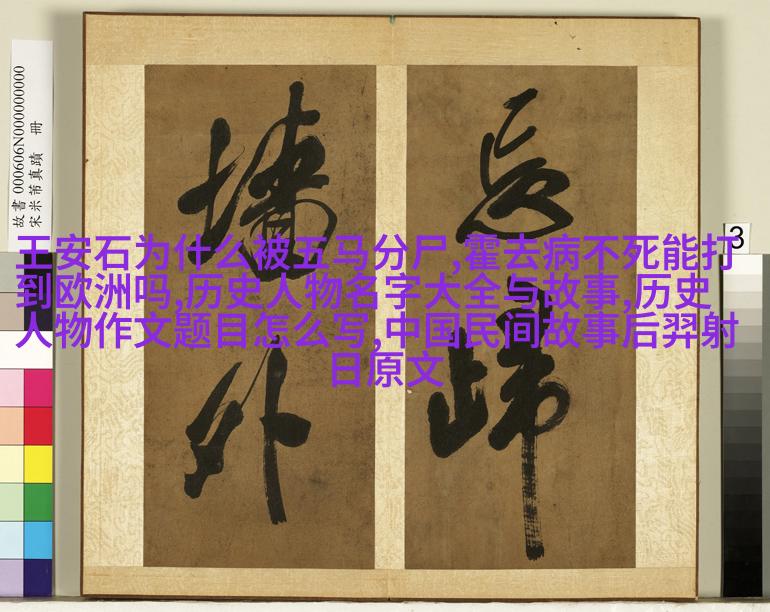 王安石为什么被五马分尸,霍去病不死能打
到欧洲吗,历史人物名字大全与故事,历史
人物作文题目怎么写,中国民间故事后羿射
日原文
忘歸
墻外
故書 000606N000000000
宋米芾真蹟 冊
3